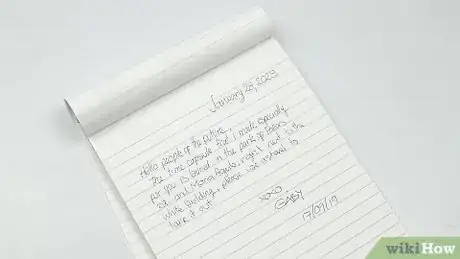 January 25, 2023
Hello people of the future,
the time capsule that I made especially
for you is buried in the park of
and right next to the
white building, please
take it out.
xoxo
GABY
17/09/19
wikiHow